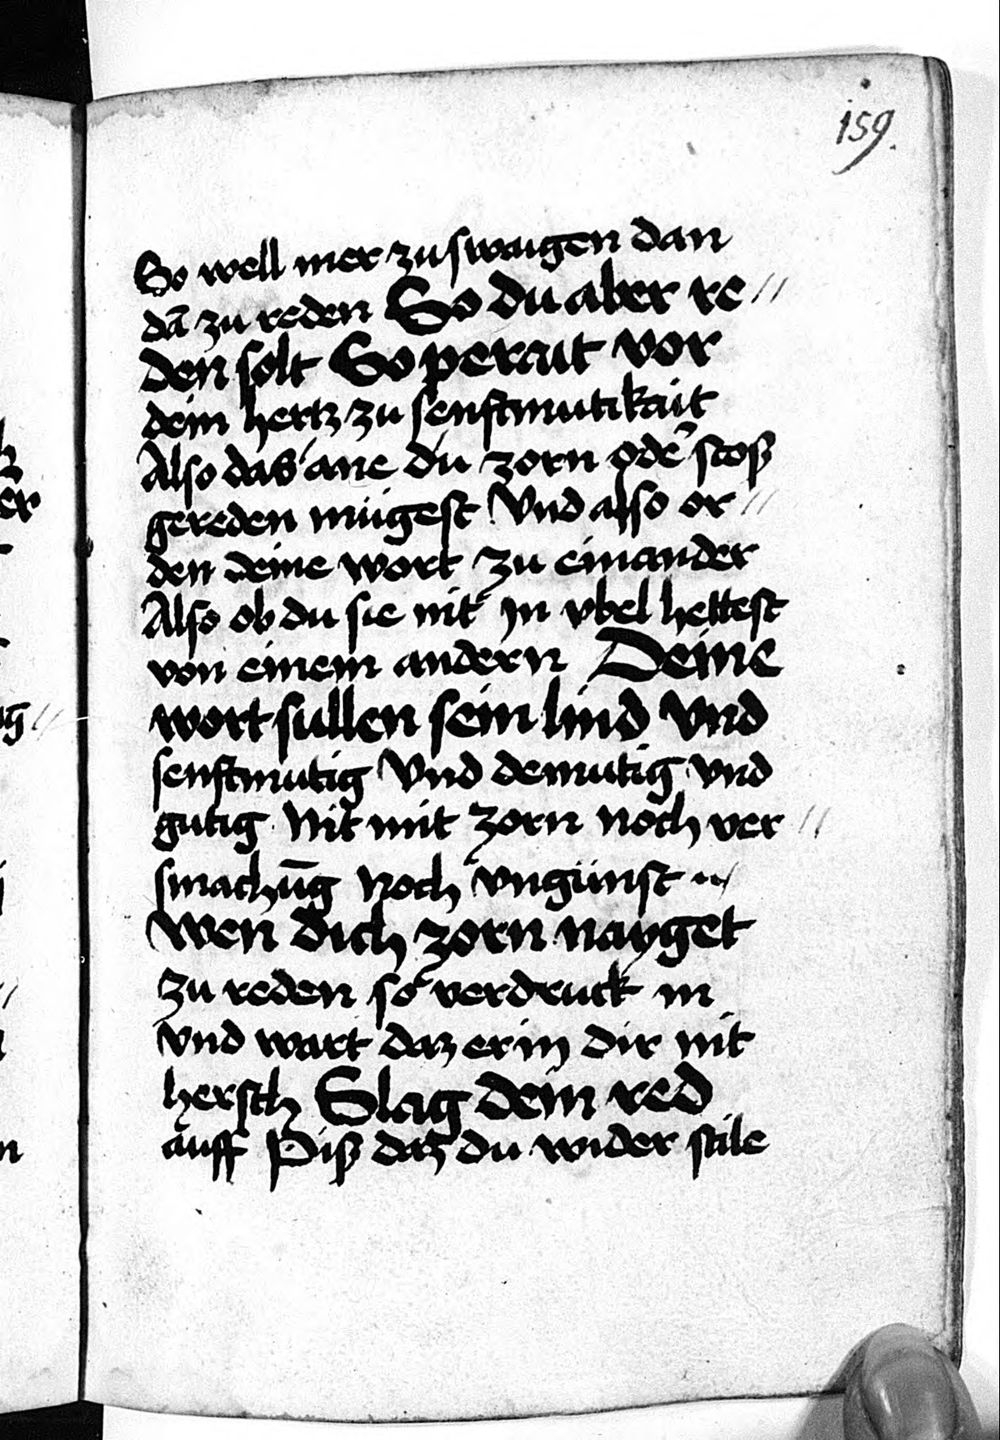 159.
So well mer zu swaigen dan
dā zu reden So du aber re //
den solt So perait vor
dein hertz zu senftmutikait
Also das ane du zorn oder stoß
gereden mügest Vnd also or //
den deine wort zu einander
Also ob du sie nit in vbel hettest
von einem andern Deine
wort sullen sein lind Vnd
senftmutig Vnd demutig vnd
gutig Nit mit zorn noch ver //
smachūg Noch vngünst
Wen dich zorn nayget
zu reden so verdruck in
Vnd wart daz er in dir nit
hersch Slag dein red
auff Piß daz du wider stile